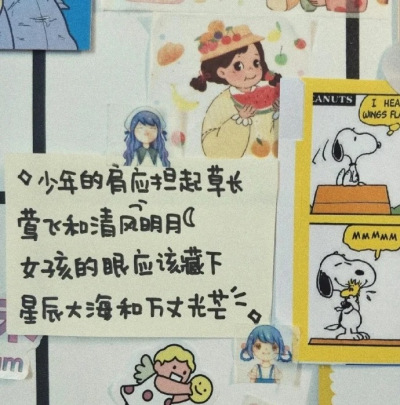 少年的肩应担起草长
莺飞和清风明月
女孩的眼应该藏下
星辰大海和万丈光芒
PEANUTS
I HEA
WINGS FLA
MMMMM
am